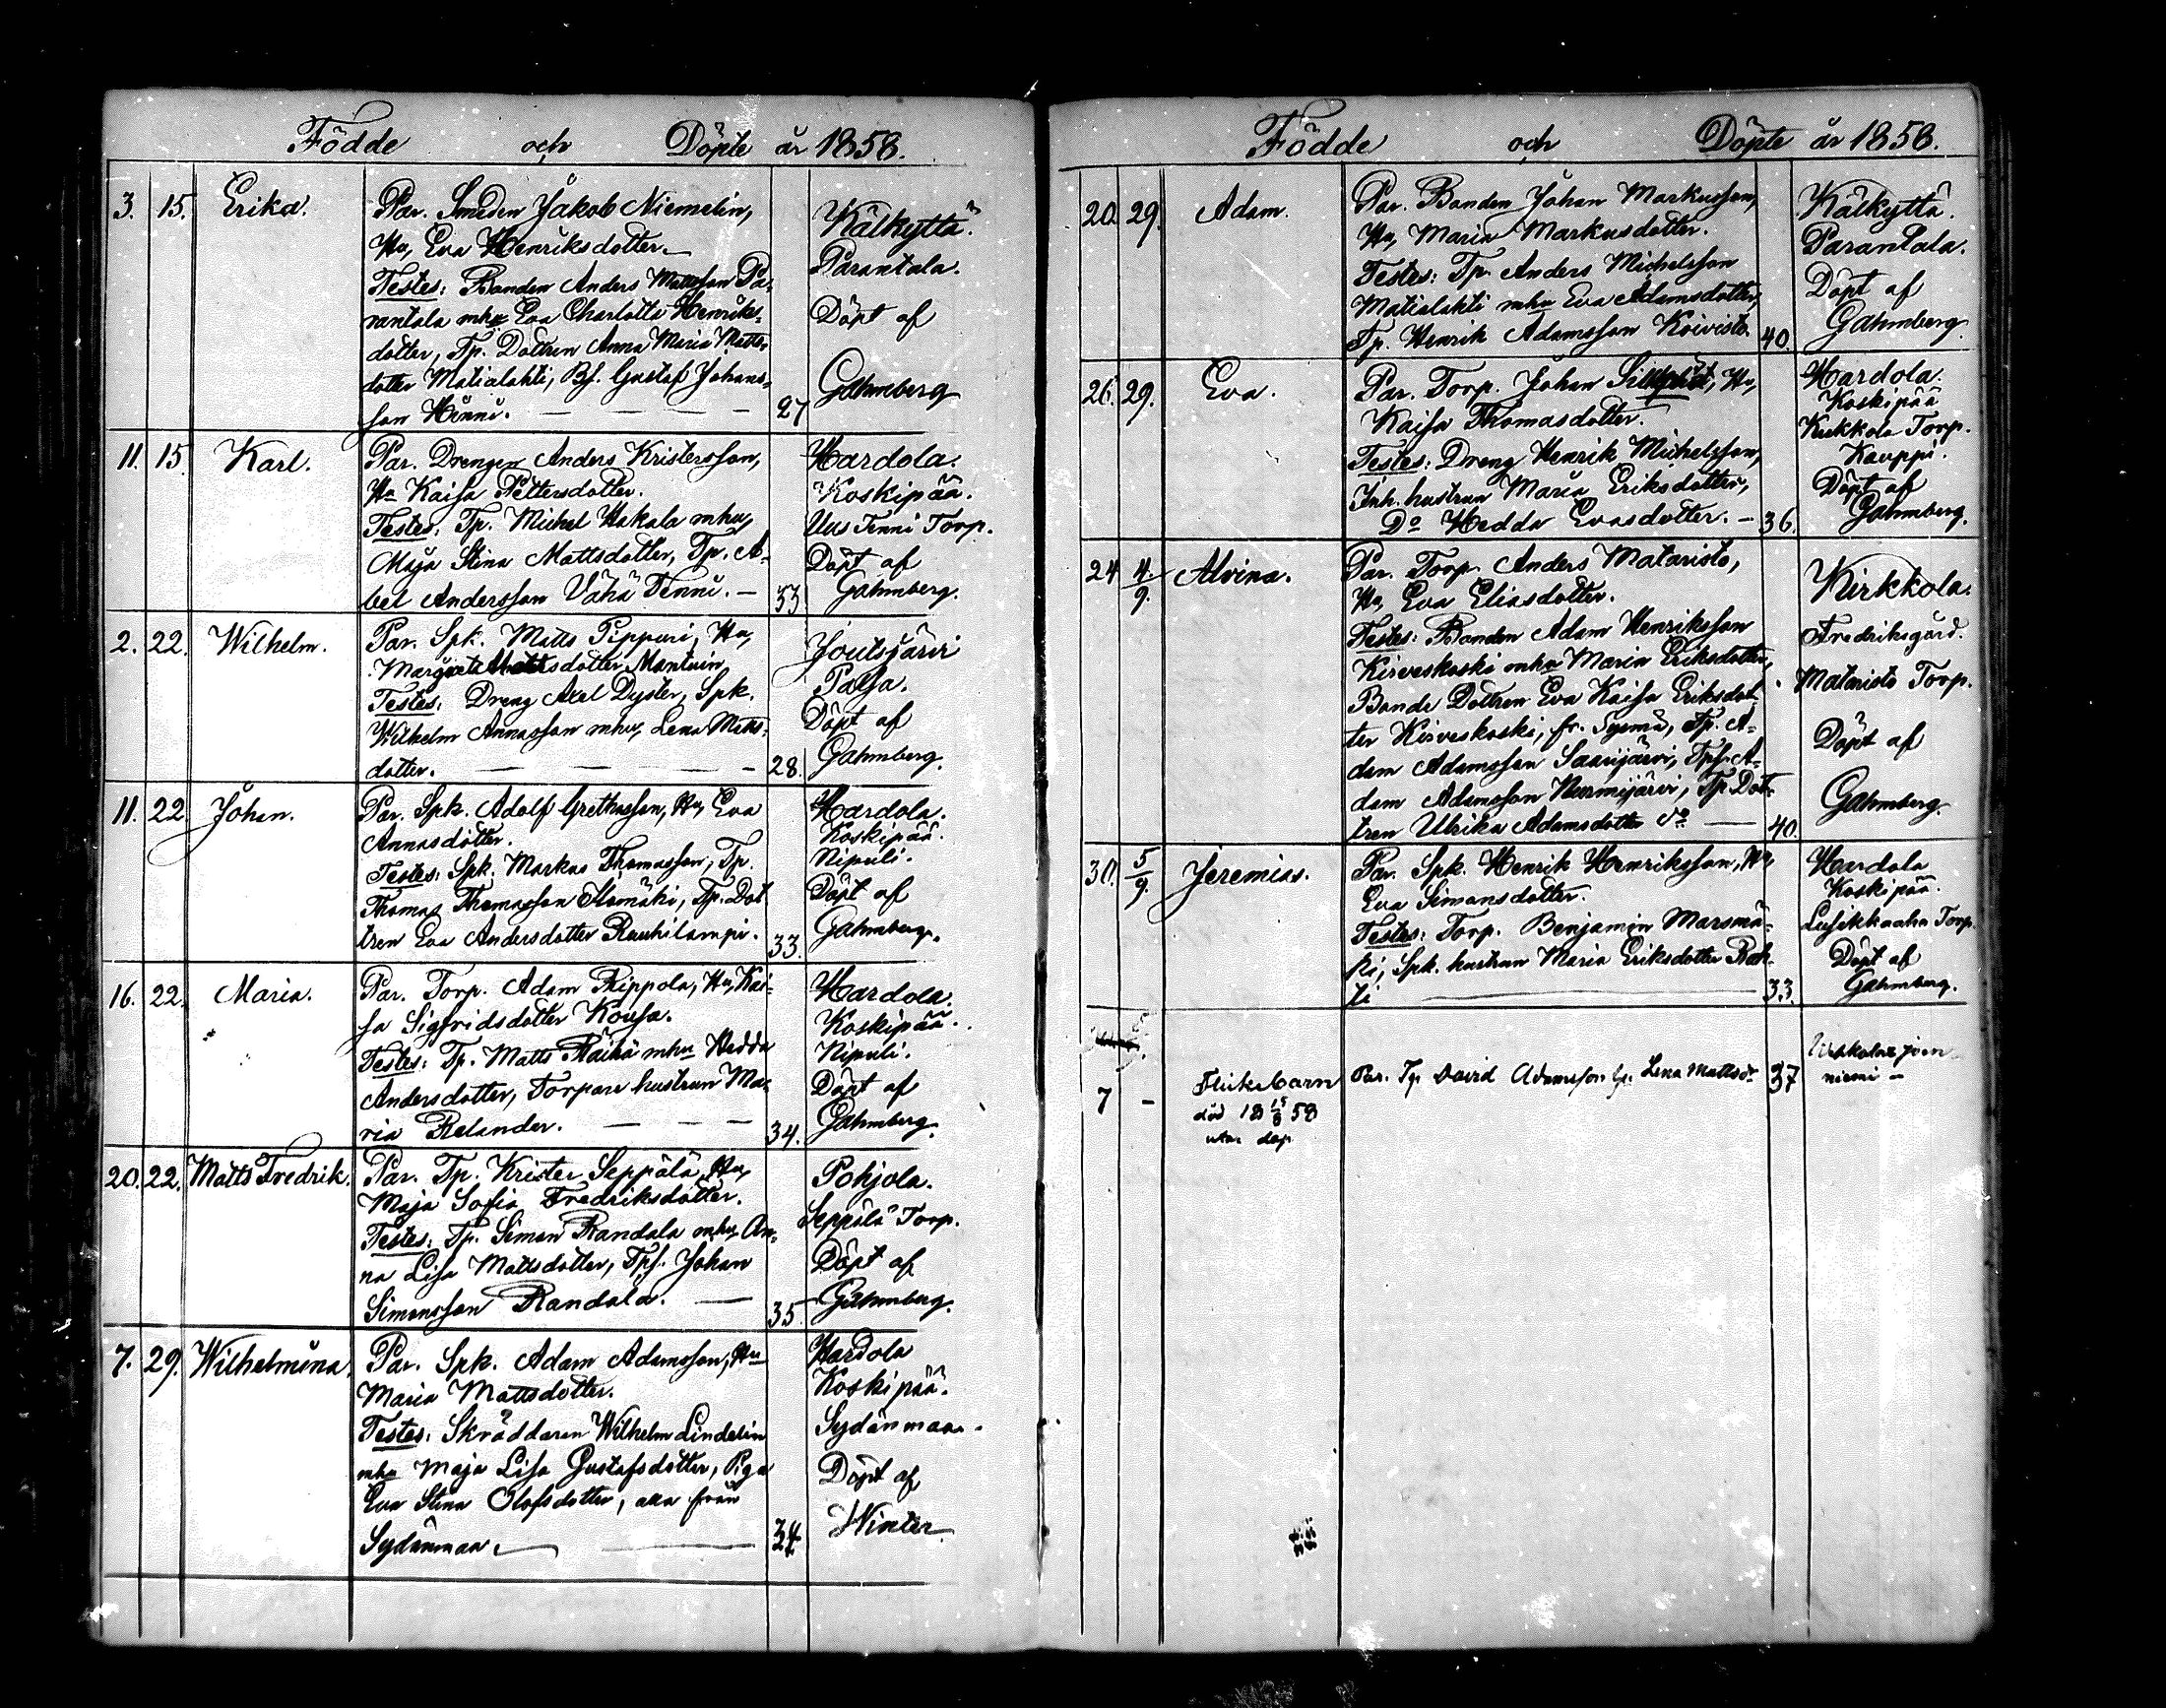 Födde och Döpte år 1858.
3. 15. Erika.
Par. Smeden Jakob Niemelin,
Hu, Eva Henriksdotter.
Testes: Bonden Anders Mattsson Pa-
rantala mhu Eva Charlotta Henriks-
dotter, Tp. Dottren Anna Maria Matts-
dotter Matialahti, Bs. Gustaf Johans-
son Hinni. 27
Kälkyttä.
Parantala.
Döpt af
Gahmberg
11. 15. Karl.
Par. Drengen Anders Kristersson,
Hu Kaisa Pettersdotter.
Testes: Tp. Michel Hakala mhu,
Maja Stina Mattsdotter, Tp. A-
bel Andersson Vähä Tenni. 33
Hardola.
Koskipää.
Uus Tenni Torp.
Döpt af
Gahmberg.
2. 22. Wilhelm.
Par. Spk. Matts Pippuri, Hu,
Margareta Mattsdotter Mantuin,
Testes: Dreng Axel Dyster, Spk.
Wilhelm Annasson mhu, Lena Matts-
dotter. 28.
Joutsjärvi
Palsa.
Döpt af
Gahmberg.
11. 22. Johan.
Par. Spk. Adolf Grethasson, Hu, Eva
Annasdotter.
Testes: Spk. Markus Thomasson, Tp.
Thomas Thomasson Ilomäki, Tp. Dot
tren Eva Andersdotter Ruuhilampi. 33.
Hardola.
Koskipää.
Nipuli.
Döpt af
Gahmberg.
16. 22. Maria.
Par. Torp. Adam Rippola, Hu, Kai-
sa Sigfridsdotter Kousa.
Testes: Tp. Matts Räihä mhu Hedda
Andersdotter, Torpare hustrun Ma-
ria Relander. 34.
Hardola.
Koskipää.
Nipuli.
Döpt af
Gahmberg.
20. 22. Matts Fredrik.
Par. Tp. Krister Seppälä, Hu,
Maja Sofia Fredriksdotter.
Testes: Tp. Simon Randala mhu, An-
na Lisa Mattsdotter, Tps. Johan
Simonsson Randala. 35
Pohjola.
Seppälä Torp.
Döpt af
Gahmberg.
7. 29. Wilhelmina.
Par. Spk. Adam Adamsson, Hu
Maria Mattsdotter.
Testes: Skräddaren Wilhelm Lindelin
mhu Maja Lisa Gustafsdotter, Piga
Eva Stina Olofsdotter, alla från
Sydänmaa. 34
Hardola
Koskipää.
Sydänmaa.
Döpt af
Winter
Födde och Döpte år 1858.
20. 29. Adam.
Par. Bonden Johan Markusson,
Hu, Maria Markusdotter.
Testes: Tp. Anders Michelsson
Matialahti mhu Eva Adamsdotter,
Tp. Henrik Adamsson Koivisto. 40.
Kälkyttä.
Parantala.
Döpt af
Gahmberg.
26. 29. Eva.
Par. Torp. Johan, Hu,
Kaisa Thomasdotter.
Testes: Dreng Henrik Michelsson,
Inh. hustrun Maria Eriksdotter,
Do Hedda Evasdotter. 36.
Hardola.
Koskipää
Kukkola Torp.
Kauppi.
Döpt af
Gahmberg.
24 4/9. Alvina.
Par. Torp. Anders Mataristo,
Hu, Eva Eliasdotter.
Testes: Bonden Adam Henriksson
Kirveskoski mhu Maria Eriksdotter,
Bonde Dottren Eva Kaisa Eriksdot
ter Kirveskoski, fr. Sysmä, Tp. A-
dam Adamsson Saarijärvi, Tps. A-
dam Adamsson Nurmijärvi, Tp Dot-
tren Ulrika Adamsdotter do. 40.
Kirkkola.
Fredriksgård.
Mataristo Torp.
Döpt af
Gahmberg.
30. 5/9. Jeremias.
Par. Spk. Henrik Henriksson, Hu,
Eva Simonsdotter.
Testes: Torp. Benjamin Marsmä-
ki, Spk. hustrun Maria Eriksdotter
33.
Hardola
Koskipää.
Lusikkaaho Torp.
Döpt af
Gahmberg.
7 - Flickebarn
död 18 15/8 58
utan dop
Par. Tp David Adamsson h. Lena Mattsdr 37
niemi -